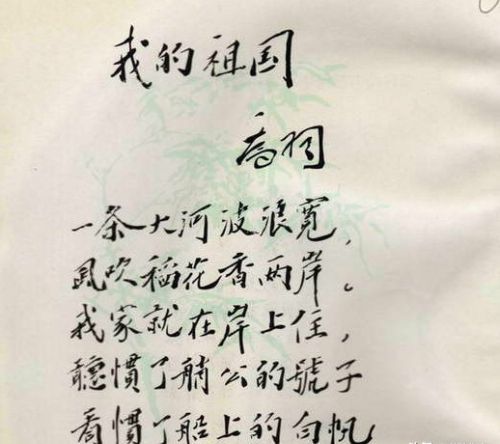 我的祖国
喬羽
一条大河波浪寬，
風吹稻花香两岸。
我家就在岸上住，
聽慣了艄公的號子
看慣了船上的白帆